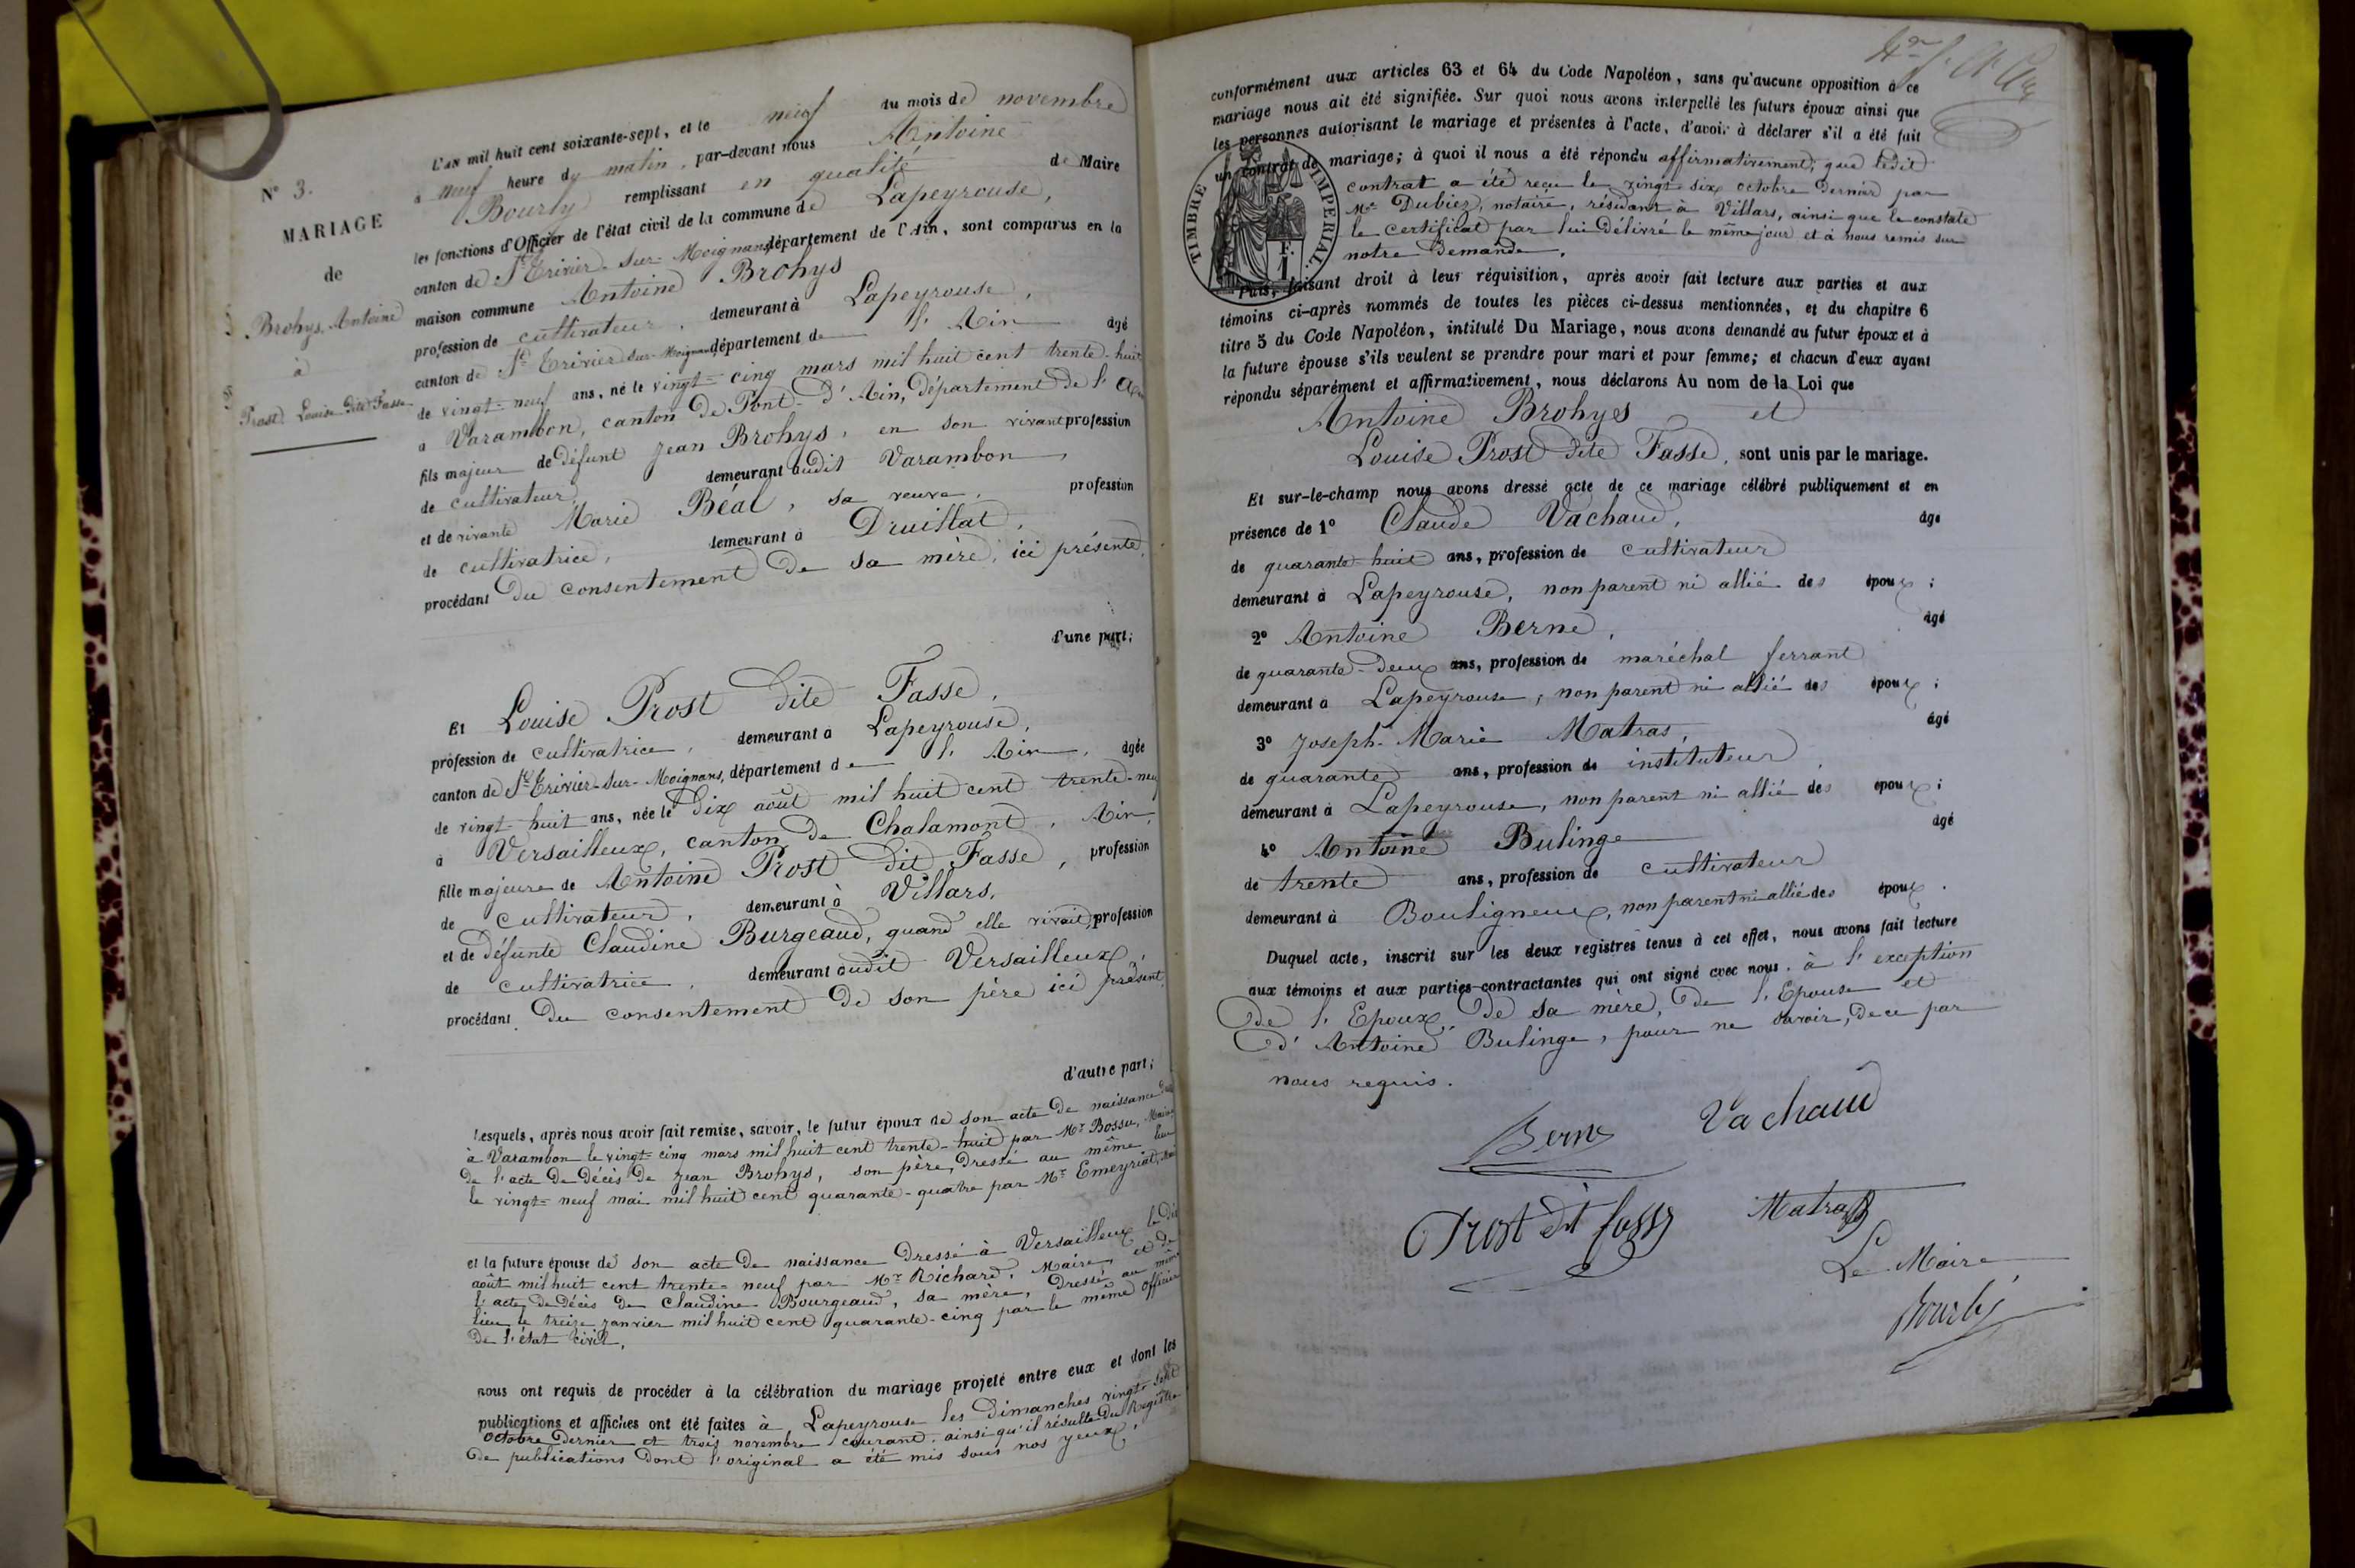 N° 3.
MARIAGE
de
Brohys, Antoine
à
Prost Louise dite Fasse
L'an mil huit cent soixante-sept, et le neuf du mois de novembre
à neuf heure du matin, par-devant nous Antoine
Bourby remplissant en qualité de Maire
les fonctions d'Officier de l'état civil de la commune de Lapeyrouse,
canton de St Trivier-sur-Moignans département de l'Ain, sont comparus en la
maison commune Antoine Brohys
profession de cultivateur, demeurant à Lapeyrouse,
canton de St Trivier-sur-Moignans département de l'Ain âgé
de vingt-neuf ans, né le vingt-cinq mars mil huit cent trente-huit
à Varambon, canton de Pont-d'Ain, département de l'Ain
fils majeur de défunt Jean Brohys, en son vivant profession
de cultivateur, demeurant audit Varambon,
et de vivante Marie Béal, sa veuve, profession
de cultivatrice, demeurant à Druillat,
procédant du consentement de sa mère, ici présente,
d'une part;
Et Louise Prost dite Fasse,
profession de cultivatrice, demeurant à Lapeyrouse,
canton de St Trivier-sur-Moignans, département de l'Ain, âgée
de vingt-huit ans, née le dix août mil huit cent trente-neuf
à Versailleux, canton de Chalamont, Ain,
fille majeure de Antoine Prost dit Fasse, profession
de cultivateur, demeurant à Villars,
et de défunte Claudine Burgeaud, quand elle vivait, profession
de cultivatrice, demeurant audit Versailleux,
procédant du consentement de son père ici présent,
d'autre part;
Lesquels, après nous avoir fait remise, savoir, le futur époux de son acte de naissance
à Varambon le vingt-cinq mars mil huit cent trente-huit par Mr Bossu, Maire
de l'acte de décès de Jean Brohys, son père, dressé au même lieu
le vingt-neuf mai mil huit cent quarante-quatre par Mr Emeyriat,
et la future épouse de son acte de naissance dressé à Versailleux le dix
août mil huit cent trente-neuf par Mr Richard, Maire, et de
l'acte de décès de Claudine Bourgeaud, sa mère, dressé au même
lieu le treize janvier mil huit cent quarante-cinq par le même officier
de l'état civil,
nous ont requis de procéder à la célébration du mariage projeté entre eux et dont les
publications et affiches ont été faites à Lapeyrouse les dimanches vingt-sept
octobre dernier et trois novembre courant, ainsi qu'il résulte du Registre
de publications dont l'original a été mis sous nos yeux,
conformément aux articles 63 et 64 du Code Napoléon, sans qu'aucune opposition à ce
mariage nous ait été signifiée. Sur quoi nous avons interpellé les futurs époux ainsi que
les personnes autorisant le mariage et présentes à l'acte, d'avoir à déclarer s'il a été fait
un contrat de mariage; à quoi il nous a été répondu affirmativement, que ledit
contrat a été reçu le vingt-six octobre dernier par
Me Dubiez, notaire, résidant à Villars, ainsi que le constate
le certificat par lui délivré le même jour et à nous remis sur
notre demande.
TIMBRE IMPERIAL.
F.
1
Puis, faisant droit à leur réquisition, après avoir fait lecture aux parties et aux
témoins ci-après nommés de toutes les pièces ci-dessus mentionnées, et du chapitre 6
titre 5 du Code Napoléon, intitulé Du Mariage, nous avons demandé au futur époux et à
la future épouse s'ils veulent se prendre pour mari et pour femme; et chacun d'eux ayant
répondu séparément et affirmativement, nous déclarons Au nom de la Loi que
Antoine Brohys et
Louise Prost dite Fasse, sont unis par le mariage.
Et sur-le-champ nous avons dressé acte de ce mariage célébré publiquement et en
présence de 1° Claude Vachaud, âgé
de quarante-huit ans, profession de cultivateur
demeurant à Lapeyrouse, non parent ni allié des époux;
2° Antoine Berne, âgé
de quarante-deux ans, profession de maréchal ferrant
demeurant à Lapeyrouse, non parent ni allié des époux;
3° Joseph-Marie Matras, âgé
de quarante ans, profession de instituteur,
demeurant à Lapeyrouse, non parent ni allié des époux;
4° Antoine Bulinge âgé
de trente ans, profession de cultivateur
demeurant à Bouligneux, non parent ni allié des époux.
Duquel acte, inscrit sur les deux registres tenus à cet effet, nous avons fait lecture
aux témoins et aux parties contractantes qui ont signé avec nous, à l'exception
de l'Epoux, de sa mère, de l'Epouse et
d'Antoine Bulinge, pour ne savoir, de ce par
nous requis.
Berne Vachaud
Prost dit fasse Matras
Le Maire
Bourby